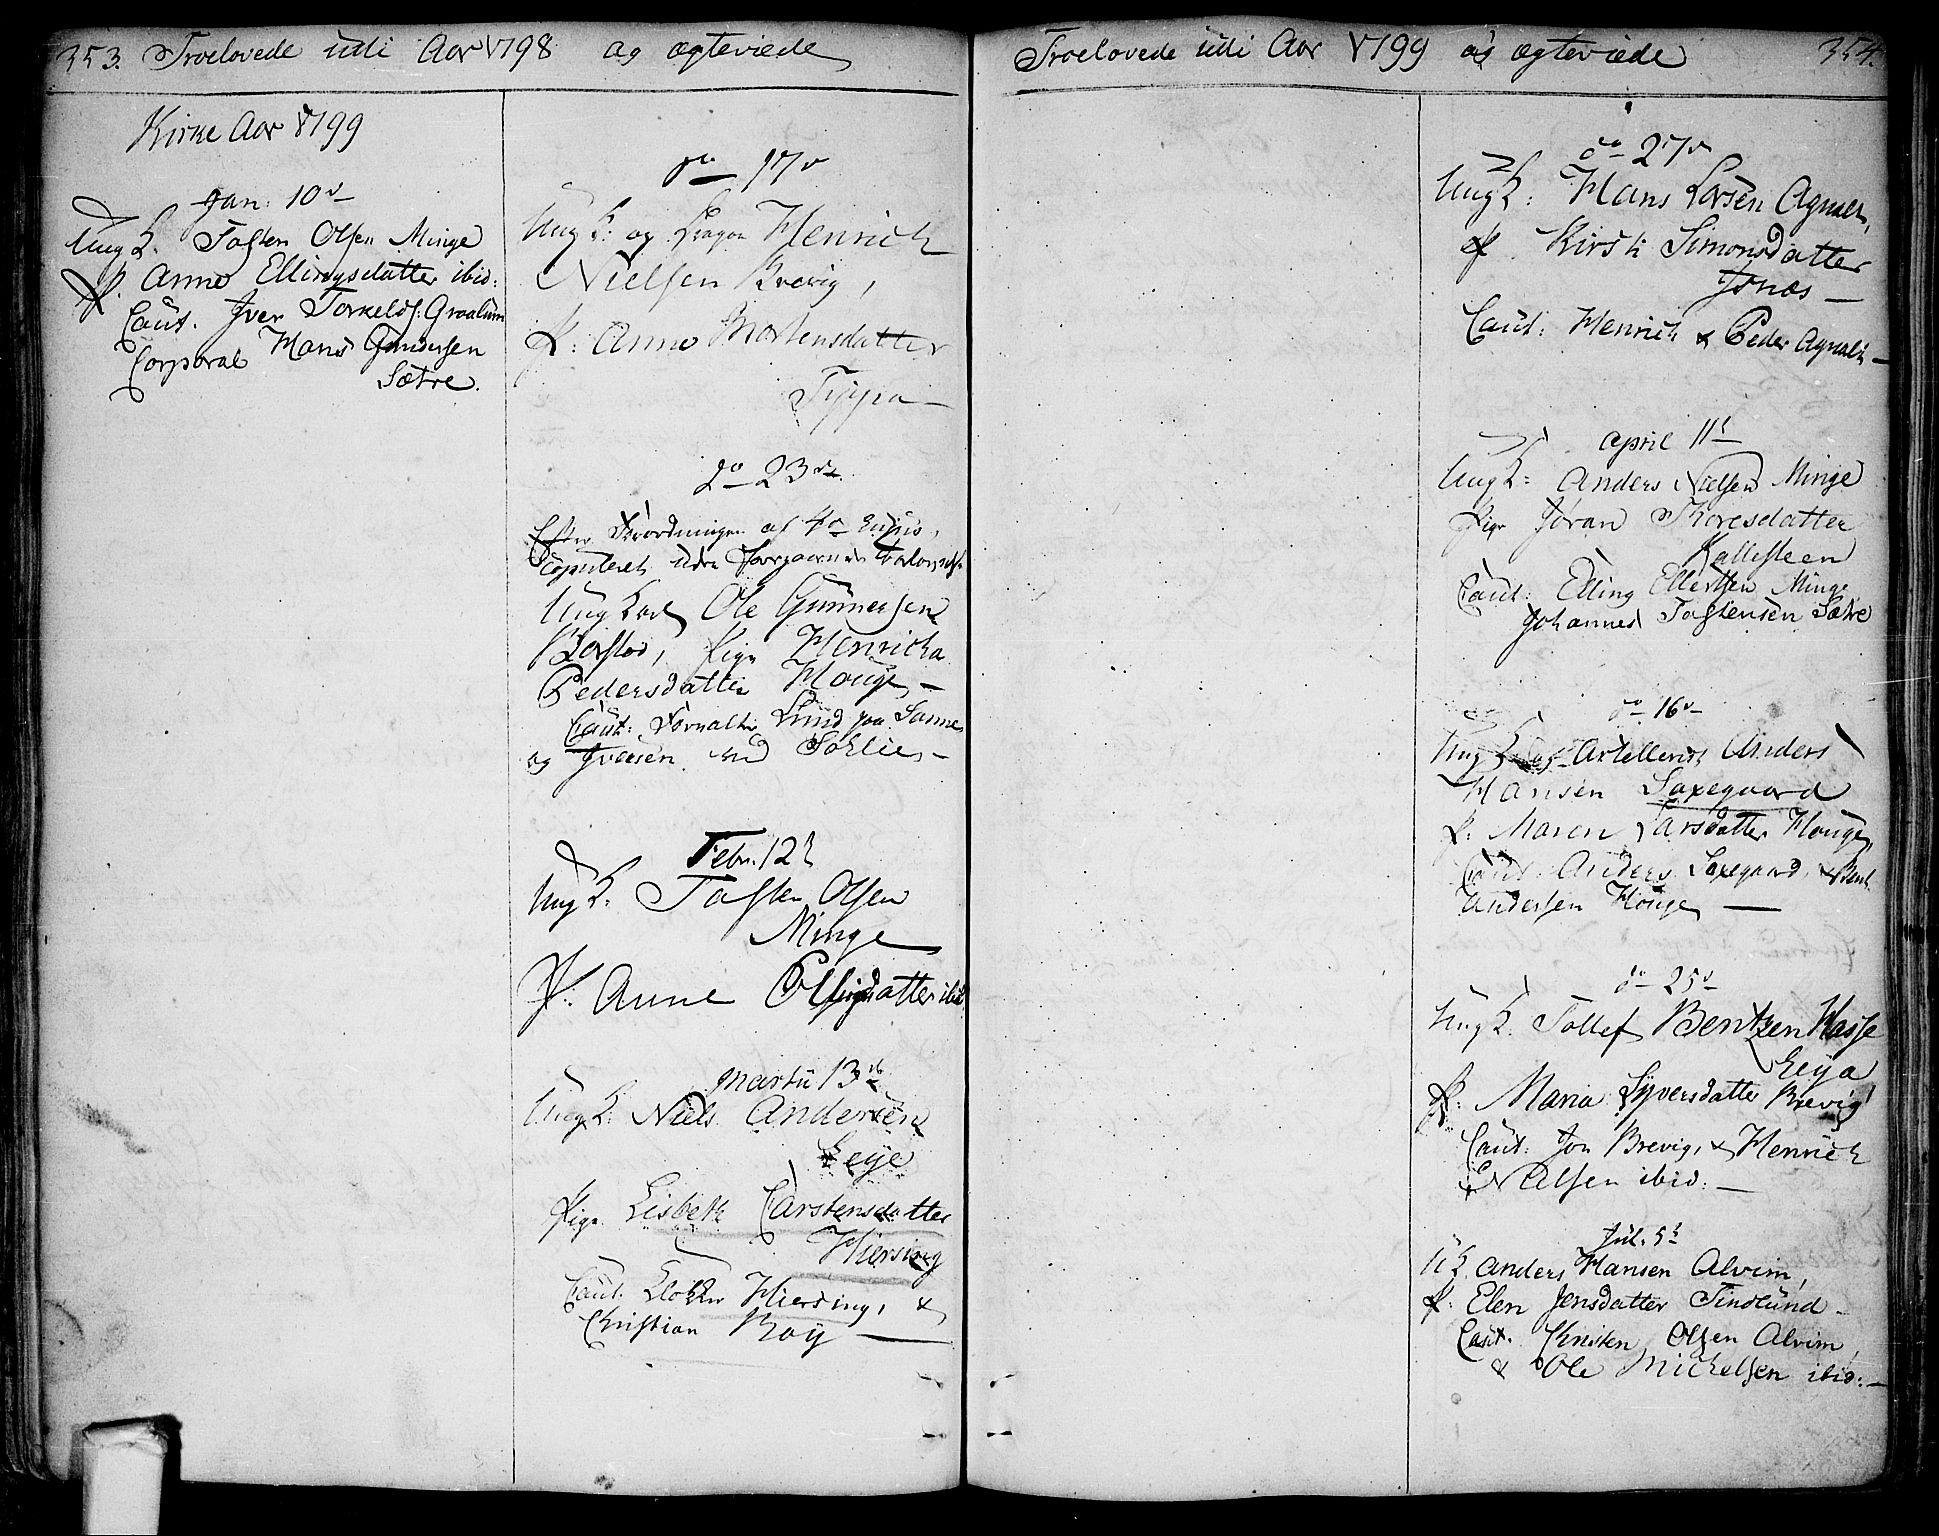 353. Troelovede udi Aar 1798 og ægteviede
Kirke Aar 1799
Jan: 10d
Ung K. Tosten Olsen Minge
P. Anne Ellingsdatter ibid:
Caut. Iver Torkelds: Graalum
Corporal Hans Gundersen
Sætre.
do 17d
Ung K: og Dragon Henrich
Nielsen Brevig,
P: Anne Mortensdatter
Tyysa
do 23d
Efter Forordningen af 4de
Copuleret uden Foregaaende Trolovelse
Ung Karl Ole Gunnersen
Borstad, Pige Henricha
Pedersdatter Houge
Caut: Forvalter Lund paa Sanne
og Iversen ved Sohlie
Febr. 12t
Ung K: Tosten Olsen
Minge
P: Anne Ellingsdatter ibid
Martii 13de
Ung K: Niels Andersen
Eeye
Pige Lisbeth Carstensdatter
Hiersing
Caut: Klokker Hiersing, &
Christian Roy
Troelovede udi Aar 1799 og ægteviede 354.
do 27d
Ung K: Hans Larsen Agnalt,
P. Kirsti Simonsdatter
Isnæs
Caut: Henrich & Peder Agnalt
April 11t
Ung K: Anders Nielsen Minge
Pige Jøran Thoresdatter
Kallesteen
Caut: Elling Ellertsen Minge
Johannes Tostensen Sætre
do 16d
Ung K og Artellerist Anders
Hansen Saxegaard
P: Maren Larsdatter Houge,
Caut. Anders Saxegaard, & Bent
Andersen Houge
do 25d
Ung K. Tollef Bentzen Hasle
Eeya
P: Maria Syversdatter Brevig
Caut. Jon Brevig, & Henrich
Nilsen ibid:
Jul. 5t
U K. Anders Hansen Alvim,
P: Elen Jensdatter Tindlund
Caut. Christen Olsen Alvim,
& Ole Michelsen ibid: